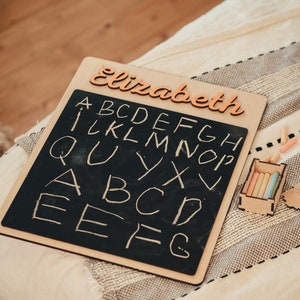 Elizabeth
ABCDEFGH
IJKLMNOP
QUYXYV
ABCD
EEEFG